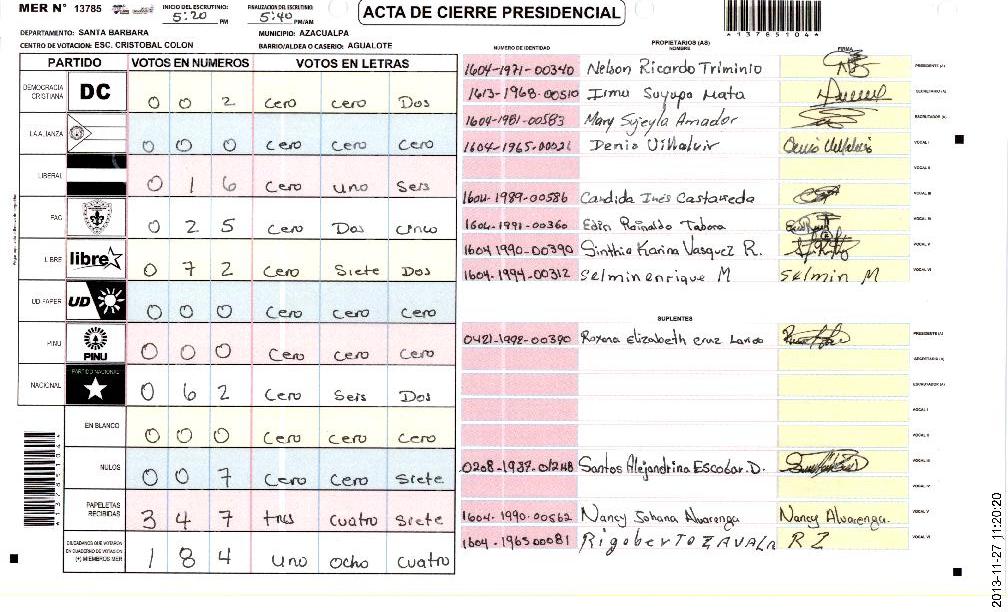 MER N° 13785
INICIO DEL ESCRUTINIO: 5:20 PM
FINALIZACION DEL ESCRUTINIO: 5:40 PM/AM
ACTA DE CIERRE PRESIDENCIAL
*13785104*
DEPARTAMENTO: SANTA BARBARA
MUNICIPIO: AZACUALPA
CENTRO DE VOTACION: ESC. CRISTOBAL COLON
BARRIO/ALDEA O CASERIO: AGUALOTE
PARTIDO VOTOS EN NUMEROS VOTOS EN LETRAS
DEMOCRACIA CRISTIANA DC 0 0 2 Cero cero Dos
LA ALIANZA 0 0 0 Cero Cero Cero
LIBERAL 0 1 6 Cero uno Seis
PAC 0 2 5 Cero Dos cinco
LIBRE libre 0 7 2 Cero Siete Dos
UD FAPER UD 0 0 0 Cero Cero Cero
PINU PINU 0 0 0 Cero Cero Cero
NACIONAL PARTIDO NACIONAL 0 6 2 Cero Seis Dos
EN BLANCO 0 0 0 Cero Cero Cero
NULOS 0 0 7 Cero Cero Siete
PAPELETAS RECIBIDAS 3 4 7 tres cuatro Siete
CIUDADANOS QUE VOTARON EN CUADERNO DE VOTACION (+) MIEMBROS MER 1 8 4 uno ocho cuatro
PROPIETARIOS (AS)
NUMERO DE IDENTIDAD NOMBRE FIRMA
1604-1971-00340 Nelson Ricardo Triminio PRESIDENTE (A)
1613-1968-00510 Irma Suyapa Mata SECRETARIO (A)
1604-1981-00583 Mary Sujeyla Amador ESCRUTADOR (A)
1604-1965-00321 Denis Villalvir VOCAL I
VOCAL II
1604-1989-00586 Candida Inés Castañeda VOCAL III
1604-1991-00360 Edin Rainaldo Tabora VOCAL IV
1604 1990-00390 Sinthia Karina Vasquez R. VOCAL V
1604-1994-00312 Selmin enrique M Selmin M VOCAL VI
SUPLENTES
0421-1992-00390 Roxana Elizabeth cruz PRESIDENTE (A)
SECRETARIO (A)
ESCRUTADOR (A)
VOCAL I
VOCAL II
Santos Alejandrina Escobar. D. VOCAL III
VOCAL IV
1604-1990-00562 Nancy Johana Alvarenga Nancy Alvarenga. VOCAL V
1604-1965 00081 Rigoberto ZAVALA R Z VOCAL VI
2013-11-27 11:20:20